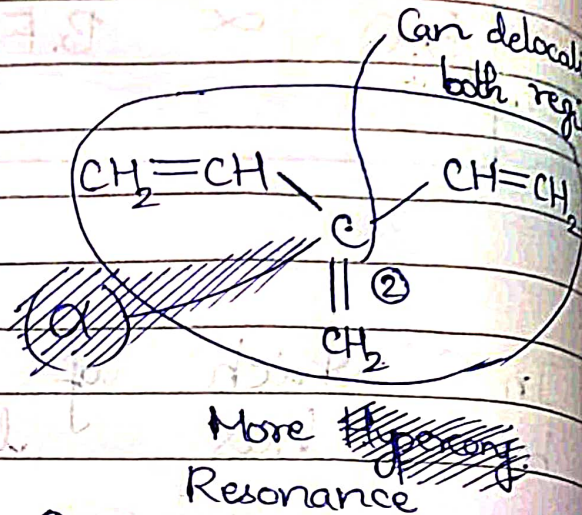 Can delocali
both regi
CH₂=CH CH=CH₂
C
||
②
CH₂
α
More Hyperconj.
Resonance